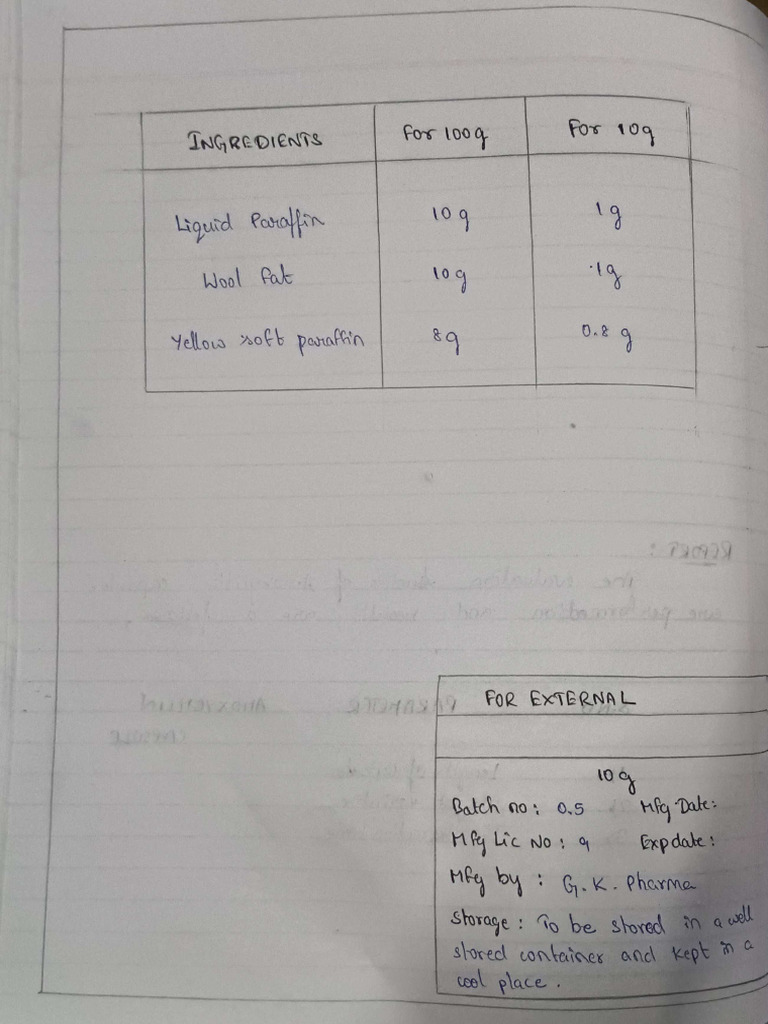 INGREDIENTS For 100g For 10g
Liquid Paraffin 10g 1g
Wool fat 10g 1g
Yellow soft paraffin 8g 0.8 g
REPORT:
FOR EXTERNAL
10g
Batch no: 0.5 Mfg Date:
Mfg Lic No: 9 Exp date:
Mfg by: G.K. Pharma
Storage: To be stored in a well
stored container and kept in a
cool place.